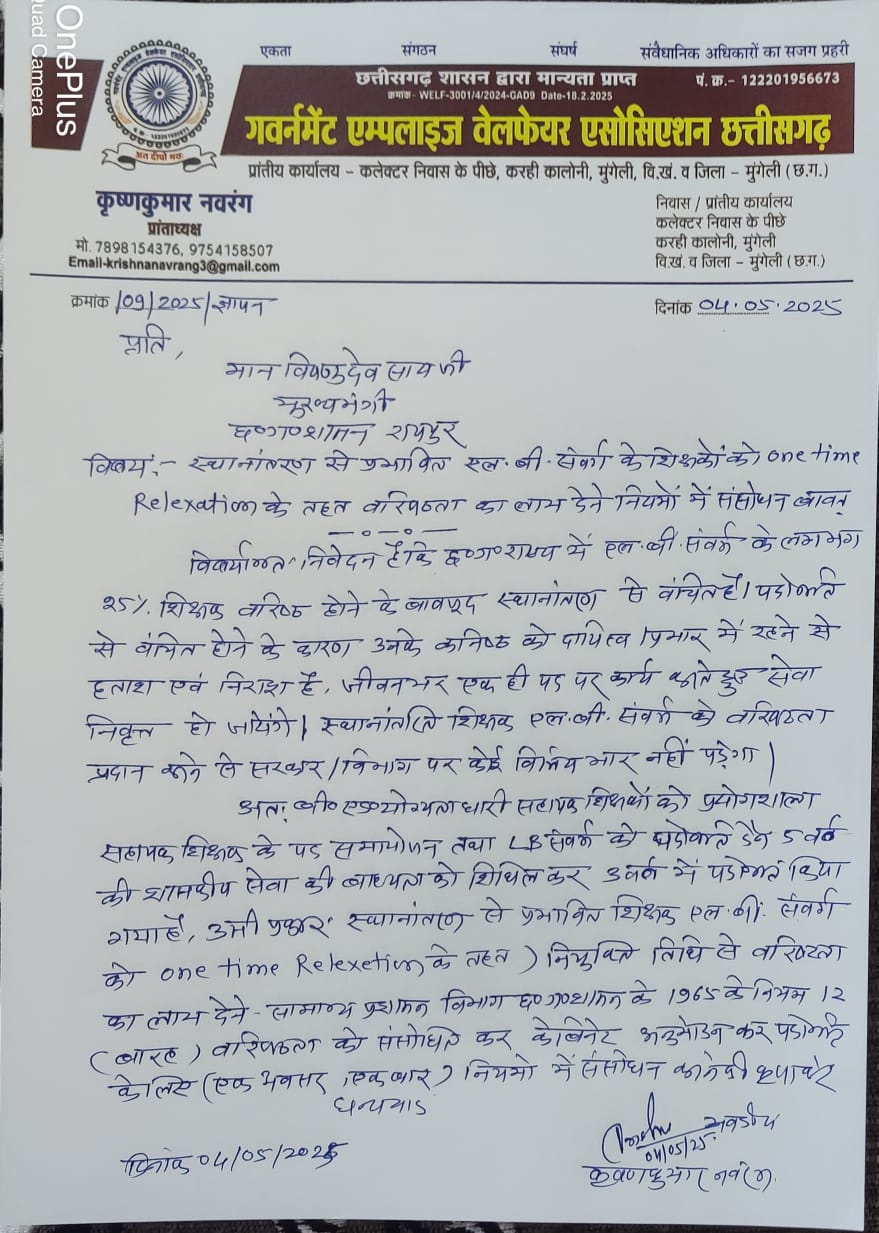 OnePlus
Quad Camera
एकता संगठन संघर्ष संवैधानिक अधिकारों का सजग प्रहरी
छत्तीसगढ़ शासन द्वारा मान्यता प्राप्त पं. क्र.- 122201956673
क्रमांक - WELF-3001/4/2024-GAD9 Date-18.2.2025
गवर्नमेंट एम्पलाइज वेलफेयर एसोसिएशन छत्तीसगढ़
अत्त दीपो भवः
प्रांतीय कार्यालय - कलेक्टर निवास के पीछे, करही कालोनी, मुंगेली, वि.खं. व जिला - मुंगेली (छ.ग.)
कृष्णकुमार नवरंग
प्रांताध्यक्ष
मो. 7898154376, 9754158507
Email-krishnanavrang3@gmail.com
निवास / प्रांतीय कार्यालय
कलेक्टर निवास के पीछे
करही कालोनी, मुंगेली
वि.खं. व जिला - मुंगेली (छ.ग.)
क्रमांक /09/2025/ज्ञापन दिनांक 04.05.2025
प्रति,
मान विष्णुदेव साय जी
मुख्यमंत्री
छ०ग०शासन रायपुर
विषय:- स्थानांतरण से प्रभावित एल.बी. संवर्ग के शिक्षकों को one time
Relexation के तहत वरिष्ठता का लाभ देने नियमों में संसोधन बावत्
निवेदन है कि छ०ग०राज्य में एल.बी. संवर्ग के लगभग
25% शिक्षक वरिष्ठ होने के बावजूद स्थानांतरण से वंचित हैं। पदोन्नति
से वंचित होने के कारण उनके कनिष्ठ को दायित्व/प्रभार में रहने से
हताश एवं निराश है, जीवनभर एक ही पद पर कार्य करते हुए सेवा
निवृत्त हो जायेंगे। स्थानांतरित शिक्षक एल.बी. संवर्ग को वरिष्ठता
प्रदान करने से सरकार/विभाग पर कोई वित्तिय भार नहीं पड़ेगा।
अतः बी०एड०योग्यताधारी सहायक शिक्षकों को प्रयोगशाला
सहायक शिक्षक के पद समायोजन तथा LB संवर्ग को पदोन्नति हेतु 5 वर्ष
की शासकीय सेवा की बाध्यता को शिथिल कर 3 वर्ष में पदोन्नत किया
गया है, उसी प्रकार स्थानांतरण से प्रभावित शिक्षक एल.बी. संवर्ग
को one time Relexetion के तहत) नियुक्ति तिथि से वरिष्ठता
का लाभ देने - सामान्य प्रशासन विभाग छ०ग०शासन के 1965 के नियम 12
(बारह) वरिष्ठता को संसोधित कर केबिनेट अनुमोदन कर पदोन्नति
के लिए (एक अवसर, एक बार) नियमों में संसोधन करने की कृपा करें
धन्यवाद
भवदीय
04/05/25
दिनांक 04/05/2025 कृष्णकुमार नवरंग